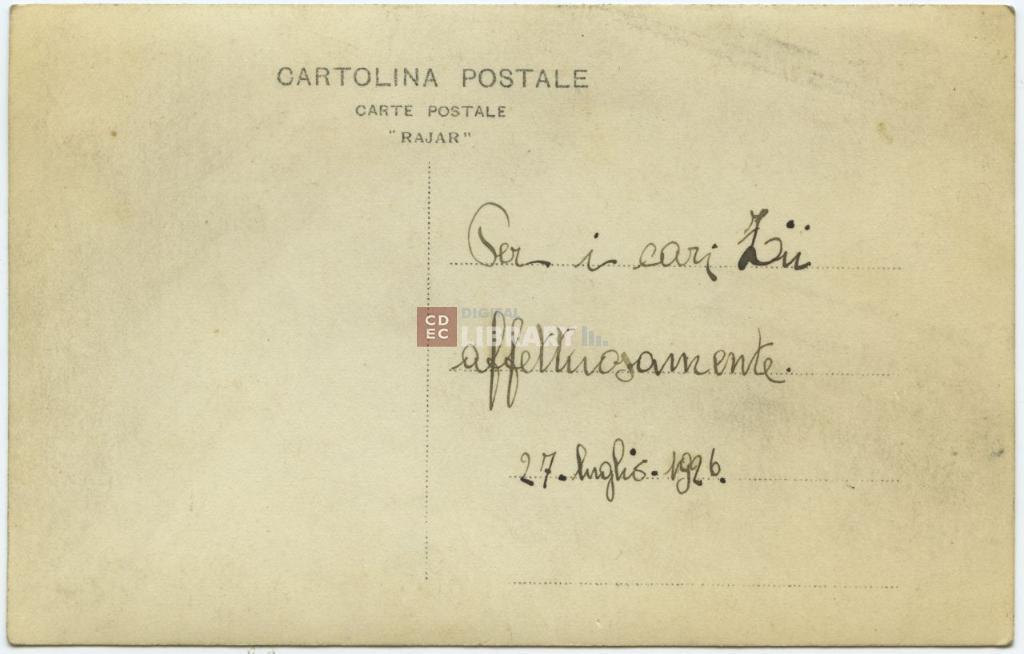 CARTOLINA POSTALE
CARTE POSTALE
"RAJAR"
Per i cari Zii
CD
EC
DIGITAL
LIBRARY
affettuosamente.
27. luglio. 1926.